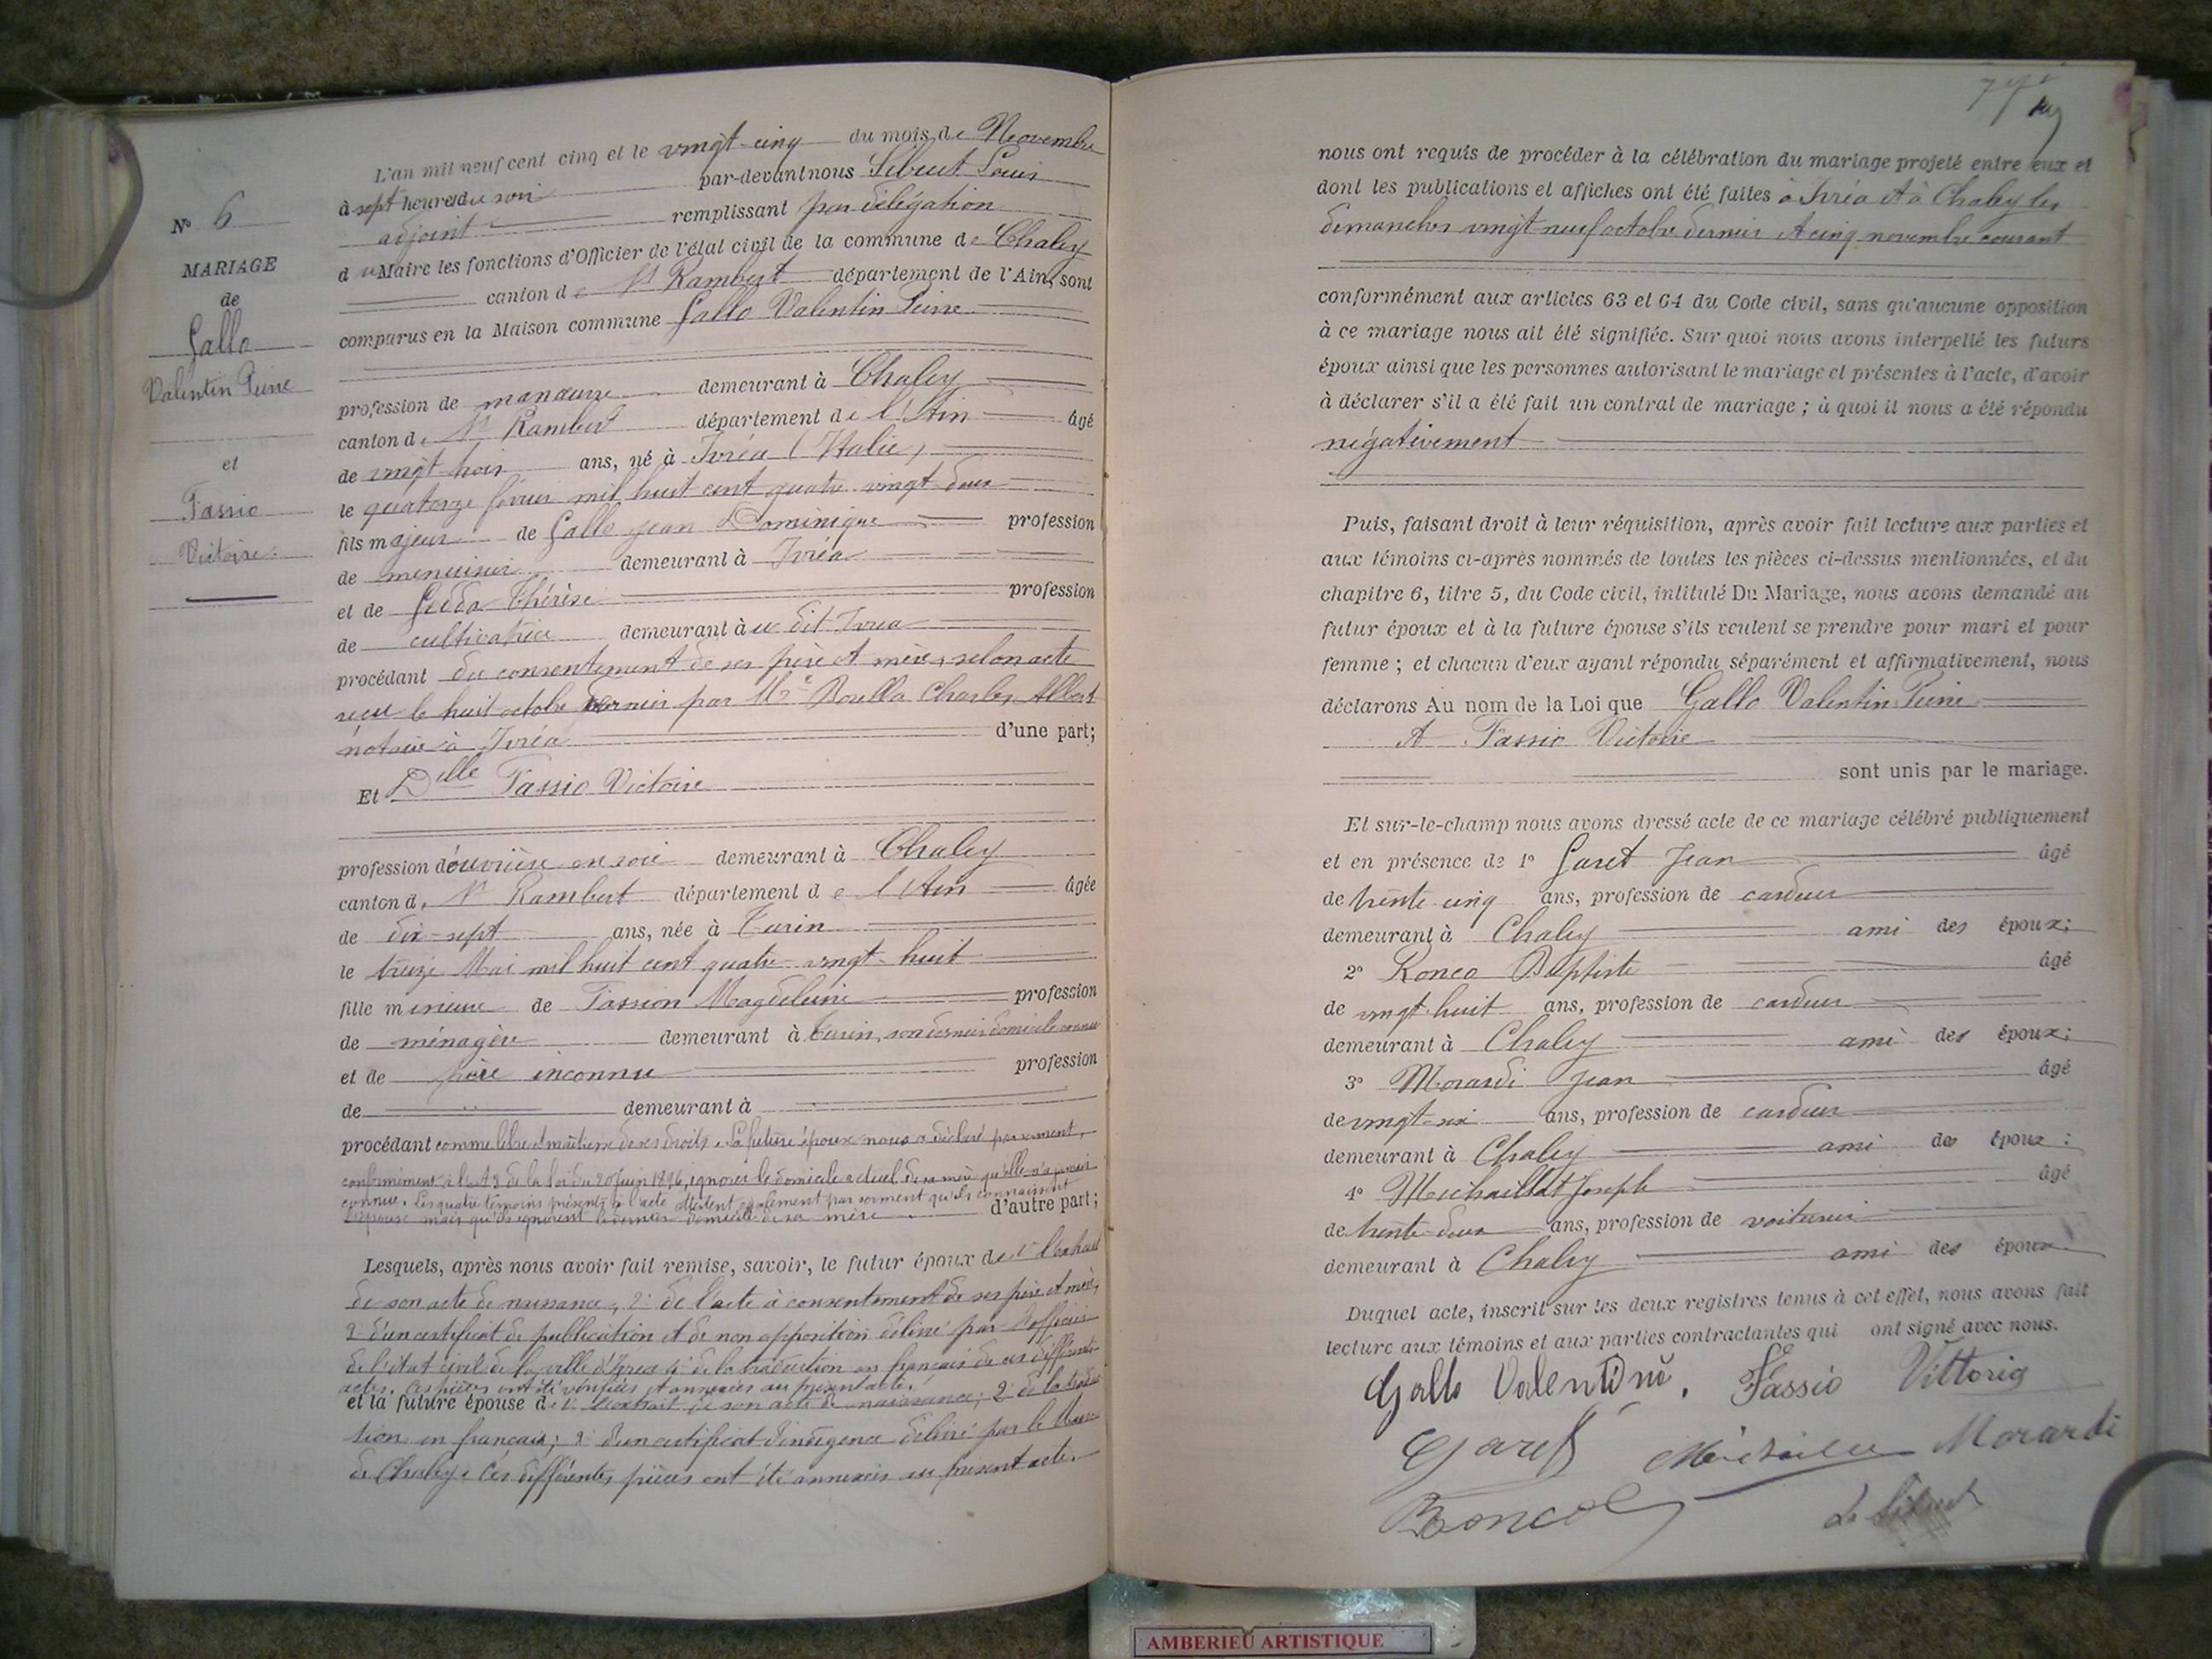 L'an mil neuf cent cinq et le vingt-cinq du mois de Novembre
à sept heures du soir par-devant nous Sibuet Louis
adjoint remplissant par délégation
du Maire les fonctions d'Officier de l'état civil de la commune de Chaley
canton de St Rambert département de l'Ain, sont
comparus en la Maison commune Gallo Valentin Pierre
profession de manœuvre demeurant à Chaley
canton de St Rambert département de l'Ain âgé
de vingt trois ans, né à Ivréa (Italie)
le quatorze février mil huit cent quatre-vingt-deux
fils majeur de Gallo Jean Dominique profession
de menuisier demeurant à Ivréa
et de Gedda Thérèse profession
de cultivatrice demeurant au dit Ivrea
procédant du consentement de ses père et mère, selon acte
reçu le huit octobre dernier par Me Borella Charles Albert
notaire à Ivréa d'une part;
Et Dlle Fassio Victoire
profession d'ouvrière en soie demeurant à Chaley
canton de St Rambert département de l'Ain âgée
de dix-sept ans, née à Turin
le treize Mai mil huit cent quatre-vingt-huit
fille mineure de Fassion Magdeleine profession
de ménagère demeurant à Turin, son dernier domicile connu
et de père inconnu profession
de demeurant à
procédant comme libre et maîtresse de ses droits. La future épouse nous a déclaré par serment,
conformément à l'art 3 de la loi du 20 juin 1896, ignorer le domicile actuel de sa mère qu'elle n'a jamais
connue. Les quatre témoins présents à l'acte attestent également par serment qu'ils connaissent
l'épouse mais qu'ils ignorent le dernier domicile de sa mère d'autre part;
Lesquels, après nous avoir fait remise, savoir, le futur époux de 1° l'extrait
de son acte de naissance, 2° de l'acte à consentement de ses père et mère,
3° d'un certificat de publication et de non opposition délivré par l'officier
de l'état civil de la ville d'Ivrea 4° de la traduction en français de ces différents
actes. Ces pièces ont été vérifiées et annexées au présent acte.
et la future épouse de 1° l'extrait de son acte de naissance; 2° de la traduc
tion en français; 3° d'un certificat d'indigence délivré par le Maire
de Chaley. Ces différentes pièces ont été annexées au présent acte.
N° 6
MARIAGE
de
Gallo
Valentin Pierre
et
Fassio
Victoire
nous ont requis de procéder à la célébration du mariage projeté entre eux et
dont les publications et affiches ont été faites à Ivréa et à Chaley les
dimanches vingt neuf octobre dernier et cinq novembre courant
conformément aux articles 63 et 64 du Code civil, sans qu'aucune opposition
à ce mariage nous ait été signifiée. Sur quoi nous avons interpellé les futurs
époux ainsi que les personnes autorisant le mariage et présentes à l'acte, d'avoir
à déclarer s'il a été fait un contrat de mariage; à quoi il nous a été répondu
négativement
Puis, faisant droit à leur réquisition, après avoir fait lecture aux parties et
aux témoins ci-après nommés de toutes les pièces ci-dessus mentionnées, et du
chapitre 6, titre 5, du Code civil, intitulé Du Mariage, nous avons demandé au
futur époux et à la future épouse s'ils veulent se prendre pour mari et pour
femme; et chacun d'eux ayant répondu séparément et affirmativement, nous
déclarons Au nom de la Loi que Gallo Valentin Pierre
et Fassio Victoire
sont unis par le mariage.
Et sur-le-champ nous avons dressé acte de ce mariage célébré publiquement
et en présence de 1° Garet Jean âgé
de trente cinq ans, profession de cardeur
demeurant à Chaley ami des époux;
2° Ronco Baptiste âgé
de vingt-huit ans, profession de cardeur
demeurant à Chaley ami des époux;
3° Morardi Jean âgé
de vingt-six ans, profession de cardeur
demeurant à Chaley ami des époux;
4° Michaillat Joseph âgé
de trente-deux ans, profession de voiturier
demeurant à Chaley ami des époux.
Duquel acte, inscrit sur les deux registres tenus à cet effet, nous avons fait
lecture aux témoins et aux parties contractantes qui ont signé avec nous.
Gallo Valentino. Fassio Vittoria
Garet Morardi
Ronco L. Sibuet
AMBERIEU ARTISTIQUE